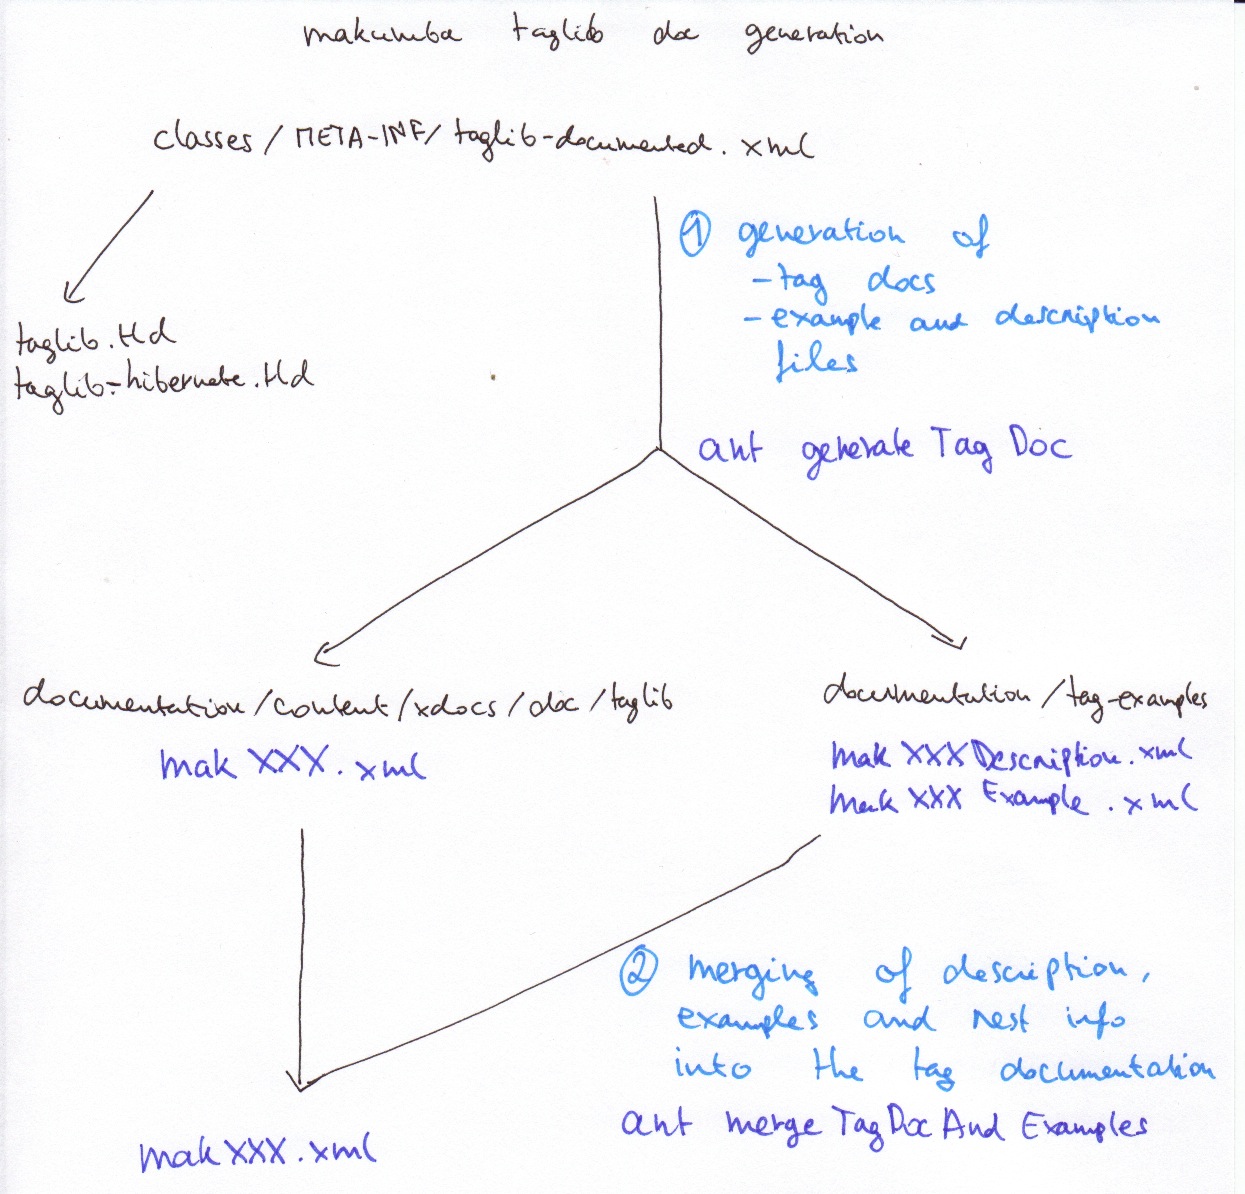 makumba taglib doc generation
classes/META-INF/taglib-documented.xml
① generation of
- tag docs
- example and description
files
taglib.tld
taglib-hibernate.tld
ant generateTagDoc
documentation/content/xdocs/doc/taglib
makXXX.xml
documentation/tag-examples
makXXXDescription.xml
makXXXExample.xml
② merging of description,
examples and rest info
into the tag documentation
ant mergeTagDocAndExamples
makXXX.xml